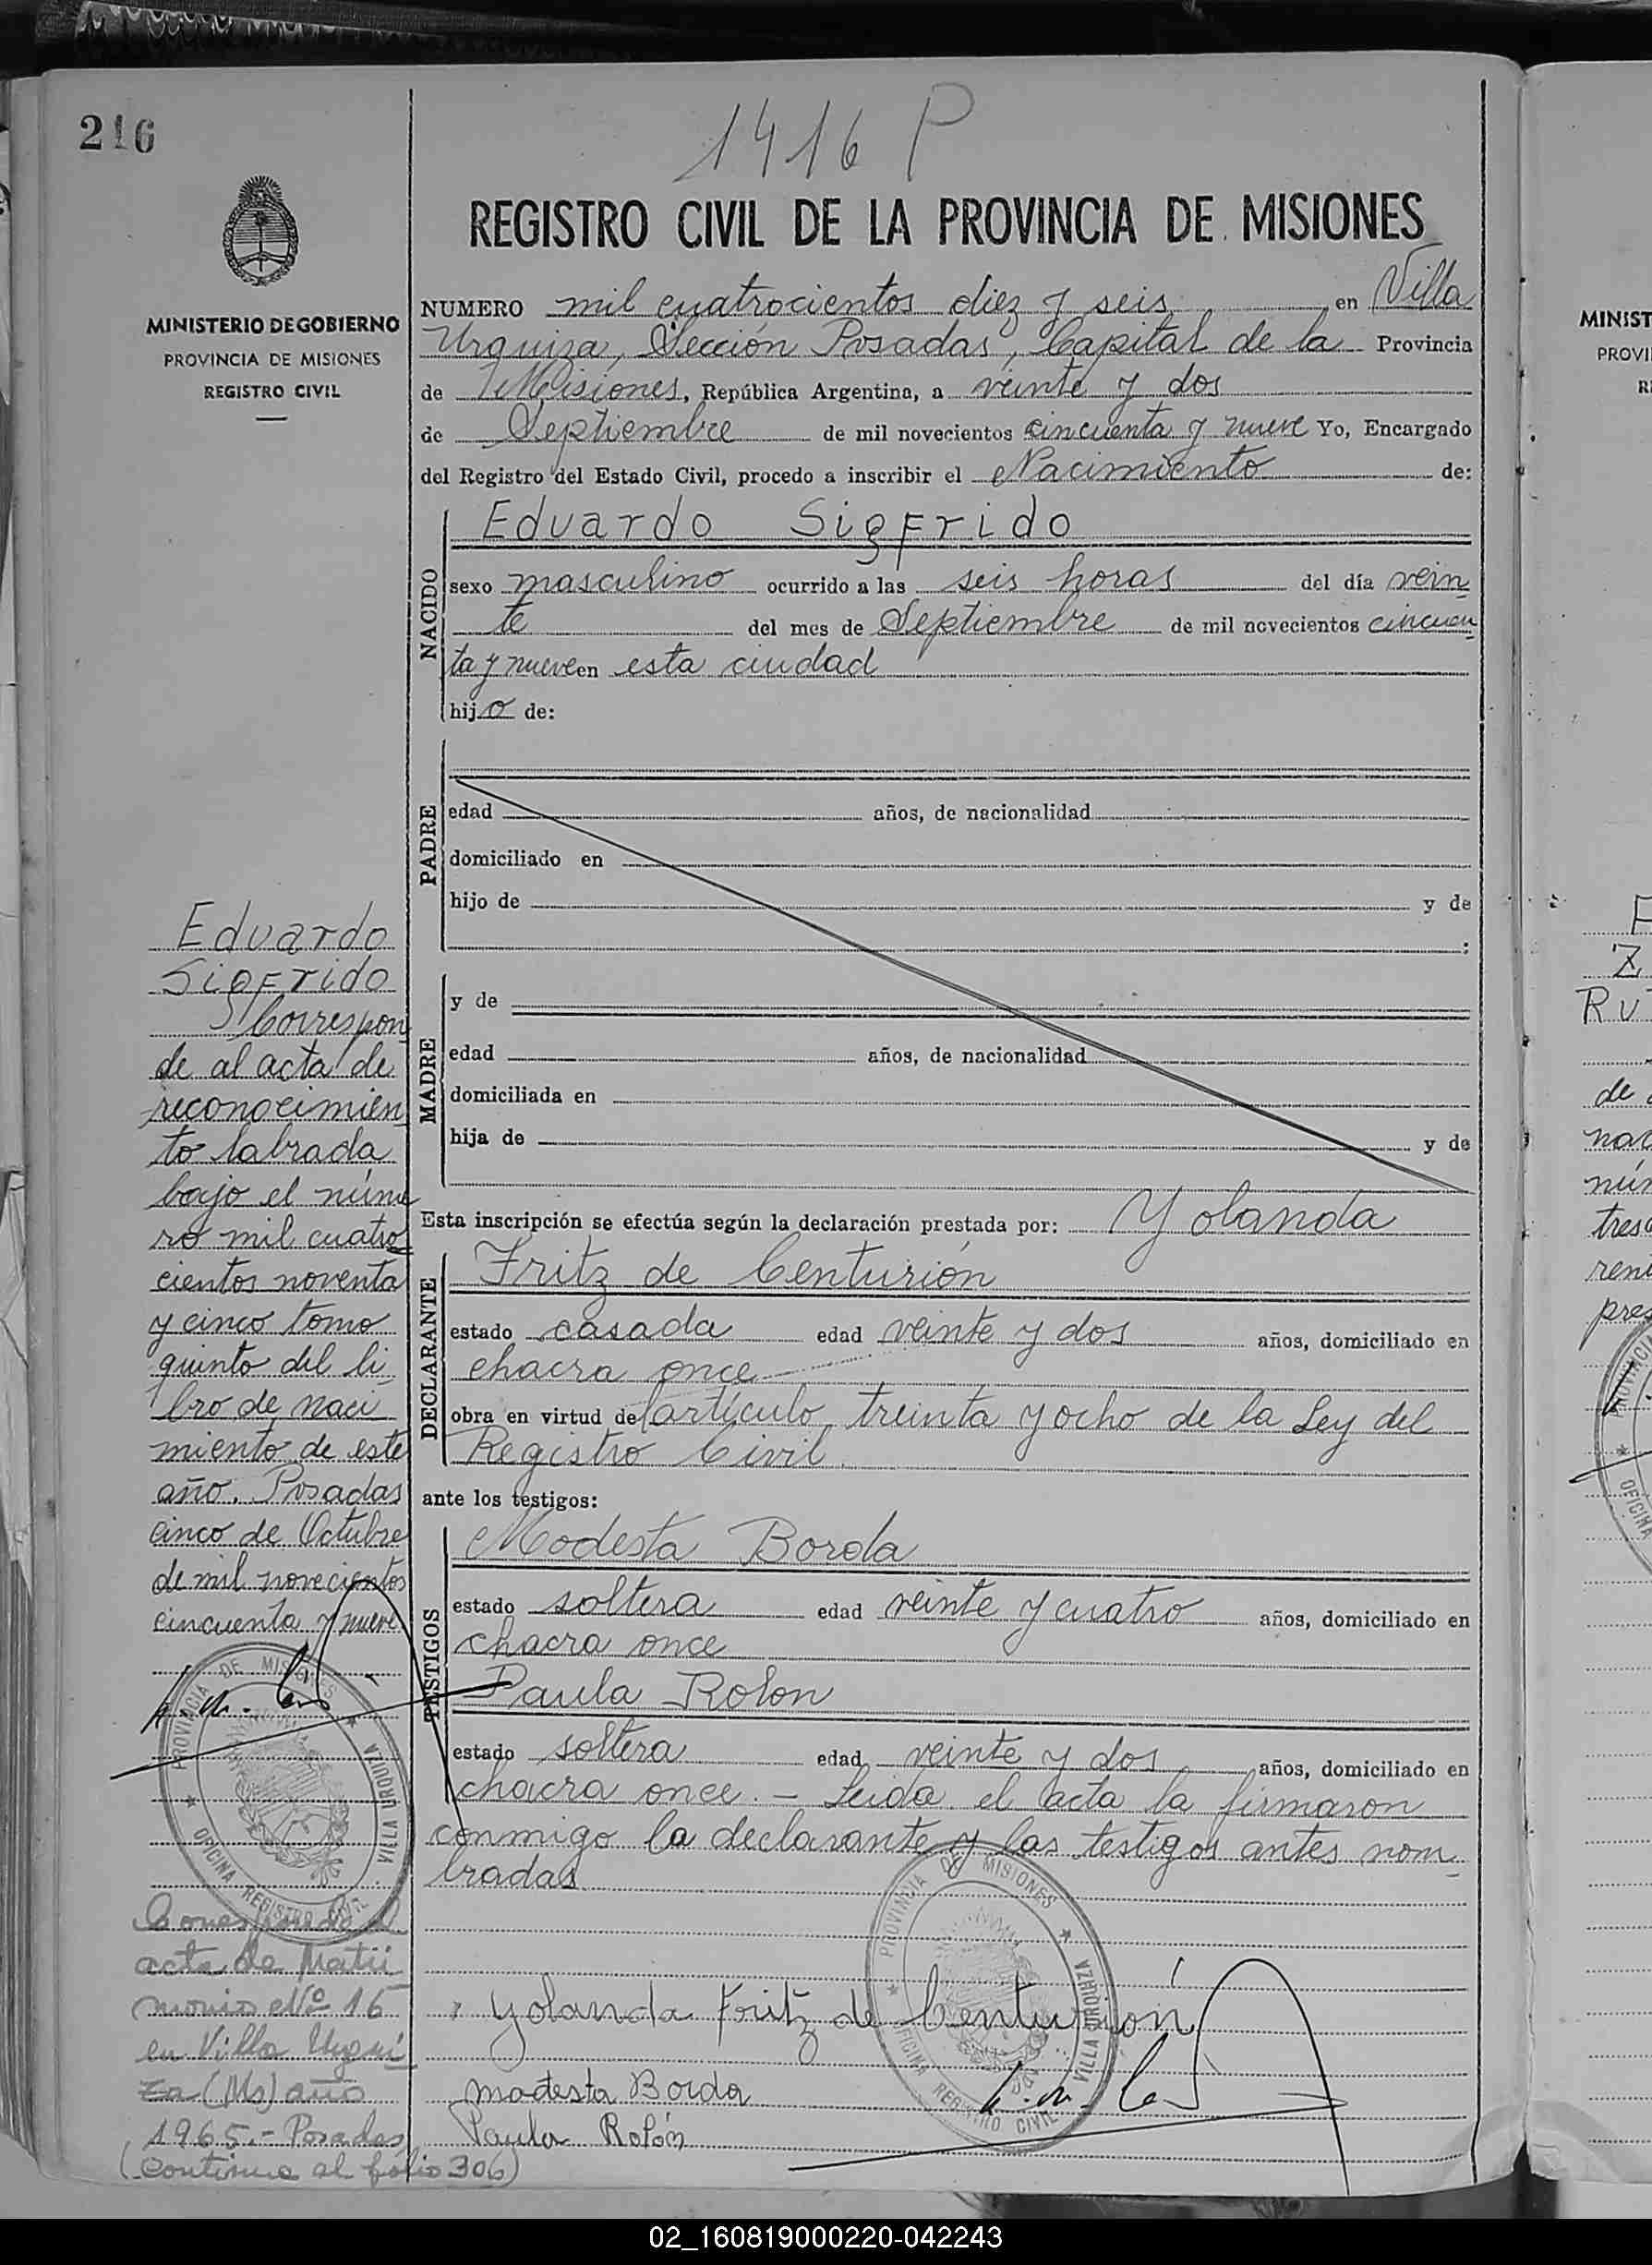 216
1416 P
REGISTRO CIVIL DE LA PROVINCIA DE MISIONES
MINISTERIO DE GOBIERNO
PROVINCIA DE MISIONES
REGISTRO CIVIL
NUMERO mil cuatrocientos diez y seis en Villa
Urquiza, Sección Posadas, Capital de la Provincia
de Misiones, República Argentina, a veinte y dos
de Septiembre de mil novecientos cincuenta y nueve Yo, Encargado
del Registro del Estado Civil, procedo a inscribir el Nacimiento de:
NACIDO
Eduardo Sigfrido
sexo masculino ocurrido a las seis horas del día vein
te del mes de Septiembre de mil novecientos cincuen
ta y nueve en esta ciudad
hijo de:
PADRE
edad años, de nacionalidad
domiciliado en
hijo de y de
;
MADRE
y de
edad años, de nacionalidad
domiciliada en
hija de y de
Esta inscripción se efectúa según la declaración prestada por: Yolanda
DECLARANTE
Fritz de Centurión
estado casada edad veinte y dos años, domiciliado en
chacra once
obra en virtud del artículo treinta y ocho de la Ley del
Registro Civil.
ante los testigos:
TESTIGOS
Modesta Borda
estado soltera edad veinte y cuatro años, domiciliado en
chacra once
Paula Rolon
estado soltera edad veinte y dos años, domiciliado en
chacra once. - Leida el acta la firmaron
conmigo la declarante y las testigos antes nom
bradas
Yolanda Fritz de Centurión
modesta Borda
Paula Rolón
PROVINCIA DE MISIONES
VILLA URQUIZA
OFICINA REGISTRO CIVIL
Eduardo
Sigfrido
Correspon
de al acta de
reconocimien
to labrada
bajo el núme
ro mil cuatro
cientos noventa
y cinco tomo
quinto del li
bro de naci
miento de este
año. Posadas
cinco de Octubre
de mil novecientos
cincuenta y nueve
PROVINCIA DE MISIONES
VILLA URQUIZA
OFICINA REGISTRO CIVIL
Corresponde al
acta de Matri
monio Nº 16
en Villa Urqui
za (Ms) año
1965.- Posadas
(Continua al folio 306)
MINIST
PROVI
R
F
Z
RU
de
nac
núm
tres
reni
pres
OFICINA
02_160819000220-042243